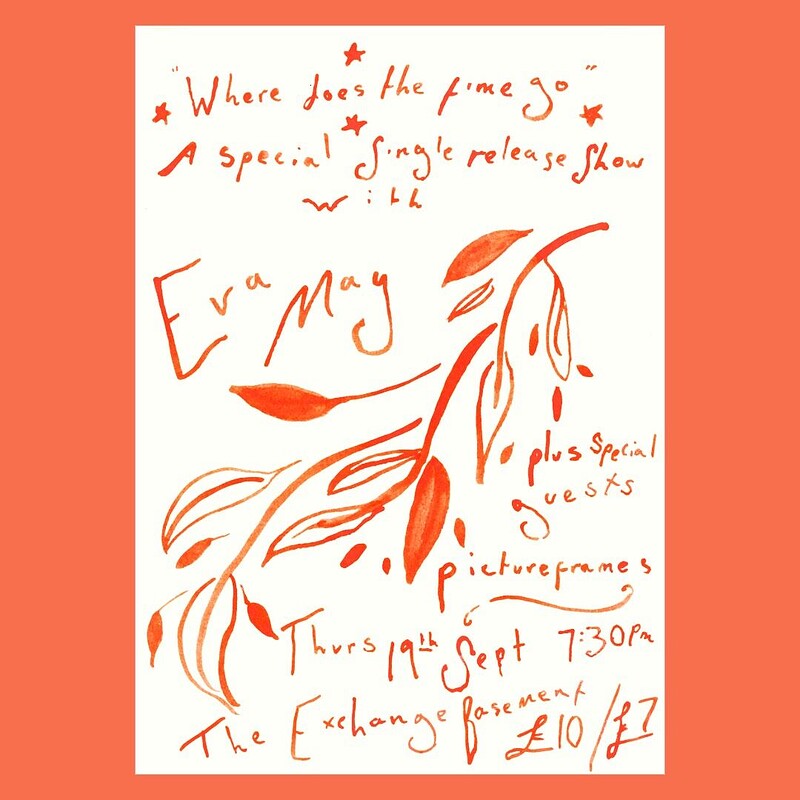 "Where does the time go"
A special single release show
with
Eva May
plus special
guests
pictureframes
Thurs 19th Sept 7:30pm
The Exchange Basement
£10/£7